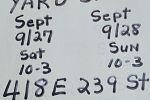 YARD S
Sept Sept
9/27 9/28
Sat SUN
10-3 10-3
418 E 239 St